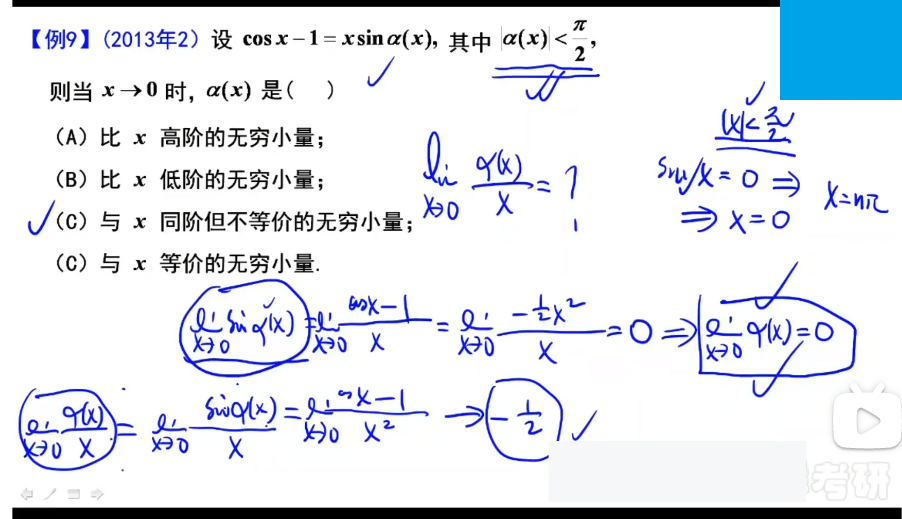 【例9】(2013年2) 设 cos x − 1 = x sin α(x), 其中 |α(x)| < π/2,
则当 x → 0 时, α(x) 是( )
(A) 比 x 高阶的无穷小量;
(B) 比 x 低阶的无穷小量;
(C) 与 x 同阶但不等价的无穷小量;
(C) 与 x 等价的无穷小量.
lim x→0 α(x)/x = ?
|x| < π/2
sin x = 0 ⇒ x = nπ
⇒ x = 0
lim x→0 sin α(x) = lim x→0 (cos x − 1)/x = lim x→0 (−½x²)/x = 0 ⇒ lim x→0 α(x) = 0
lim x→0 α(x)/x = lim x→0 sin α(x)/x = lim x→0 (cos x − 1)/x² → −1/2
考研